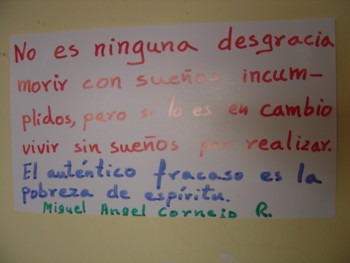 No es ninguna desgracia
morir con sueños incum-
plidos, pero sí lo es en cambio
vivir sin sueños por realizar.
El auténtico fracaso es la
pobreza de espíritu.
Miguel Angel Cornejo R.